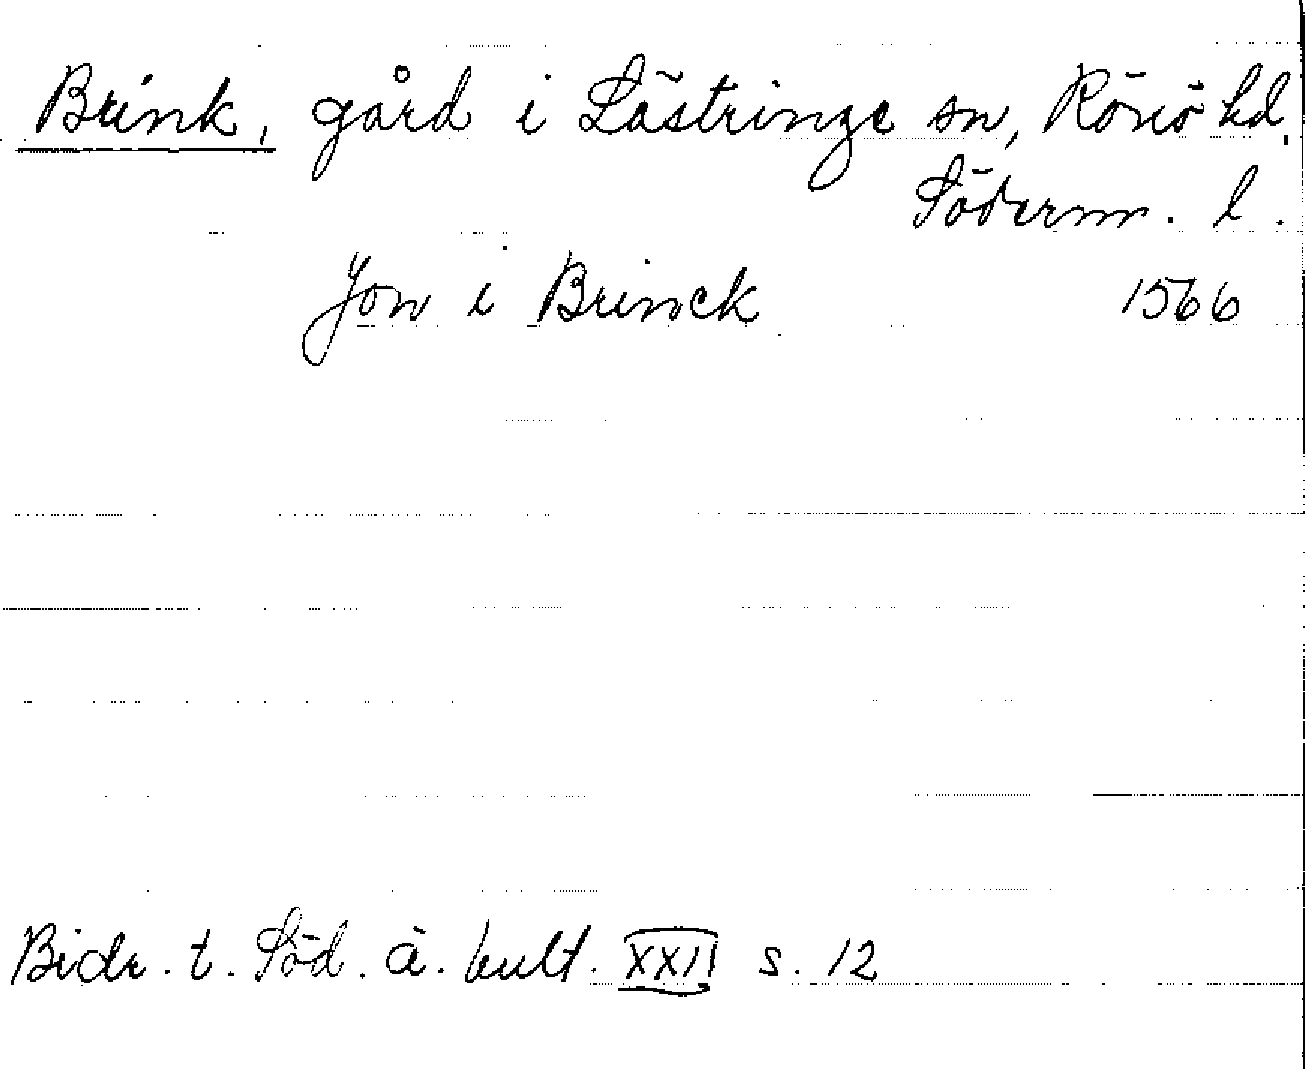 Brink, gård i Lästringe sn, Rönö hd,
Söderm. l.
Jon i Brinck 1566
Bidr. t. Söd. ä. kult. XXII s. 12